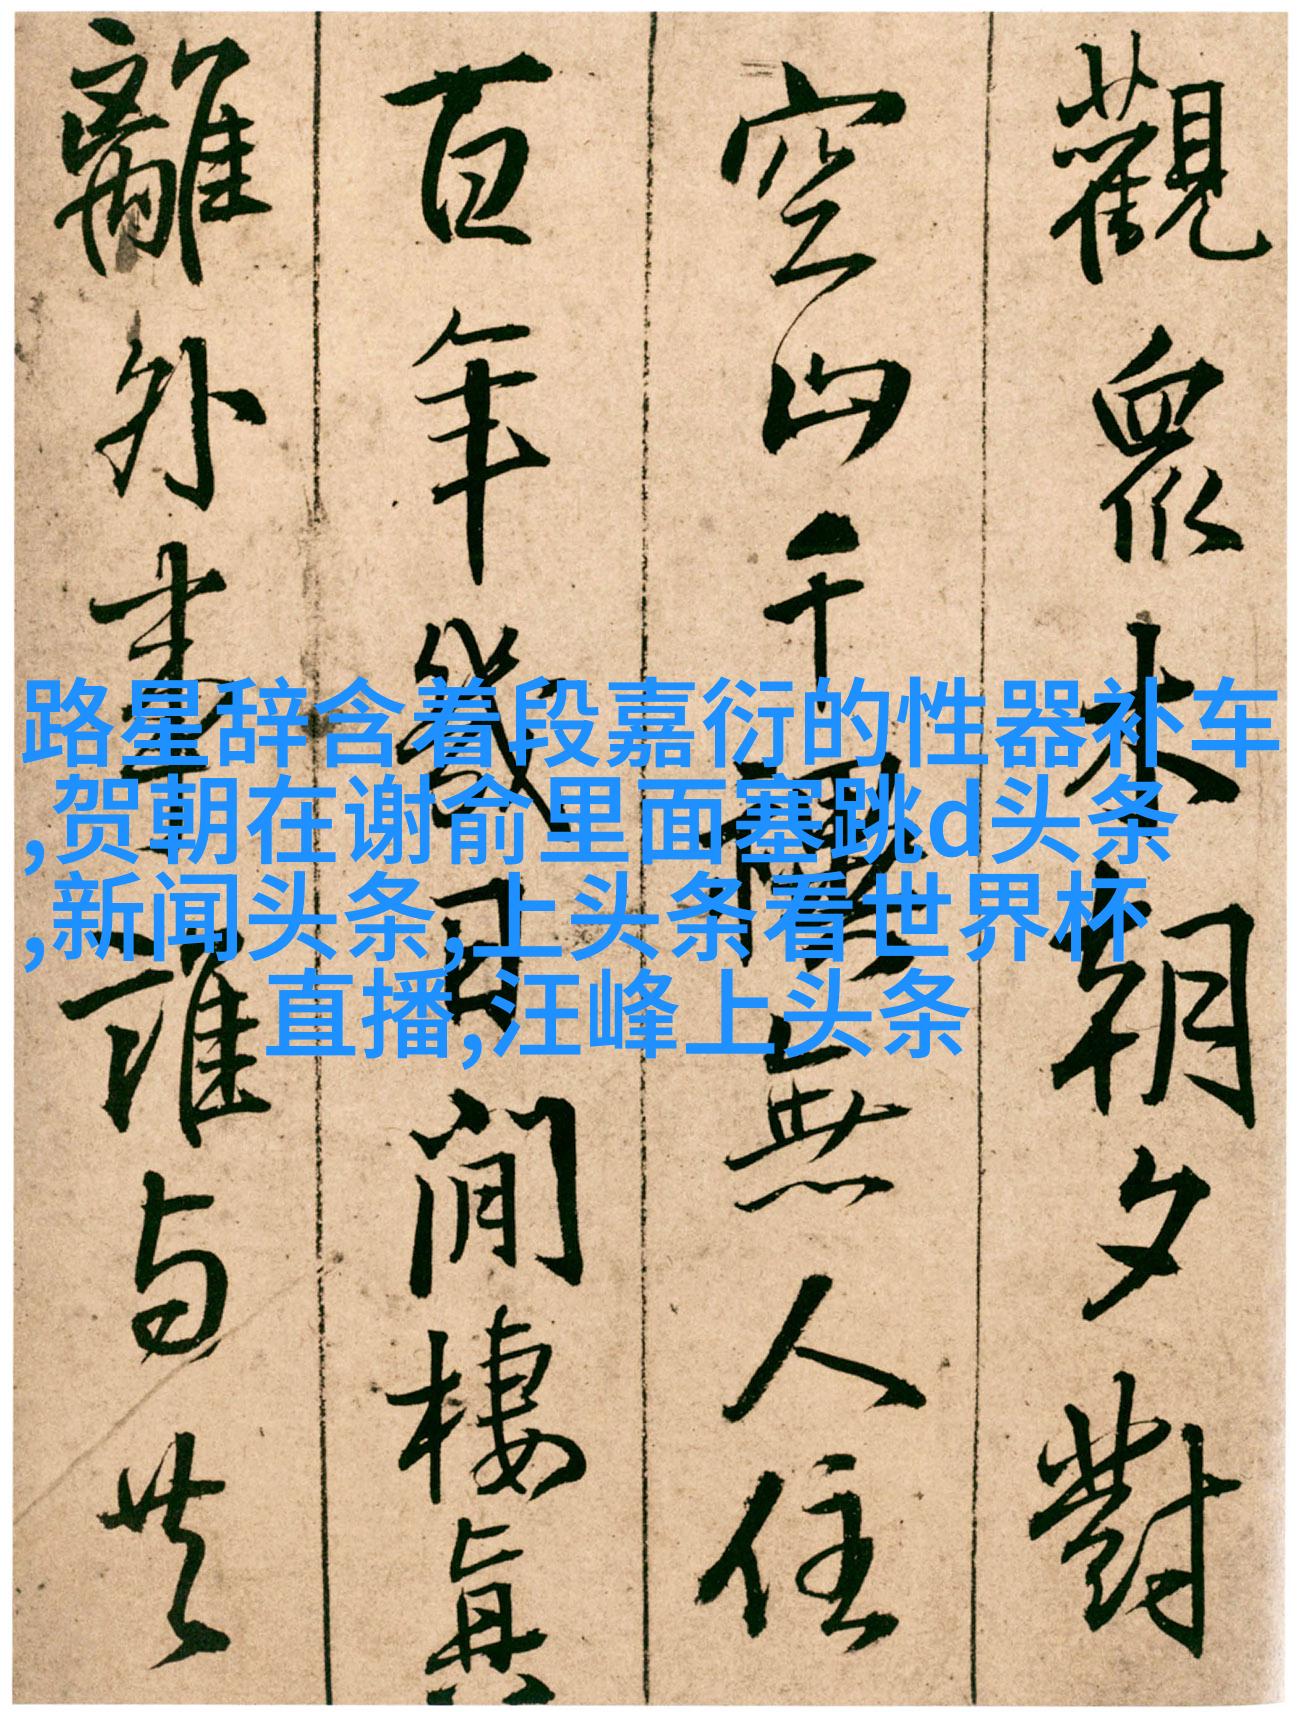 觀眾朝夕對
空山千無人住
百年幾日間棲真
離外与共
路星辞含着段嘉衍的性器补车
,贺朝在谢俞里面塞跳d头条
,新闻头条,上头条看世界杯
直播,汪峰上头条